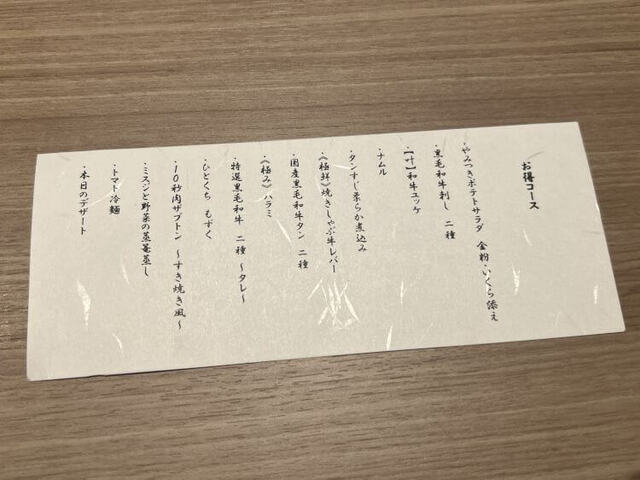 お得コース
・やみつきポテトサラダ 金粉・いくら添え
・黒毛和牛刺し 二種
・【叶】和牛ユッケ
・ナムル
・タンすじ柔らか煮込み
・《極鮮》焼きしゃぶ牛レバー
・国産黒毛和牛タン 二種
・《極み》ハラミ
・特選黒毛和牛 二種 ～タレ～
・ひとくち もずく
・10秒肉ザブトン ～すき焼き風～
・ミスジと野菜の蒸篭蒸し
・トマト冷麺
・本日のデザート